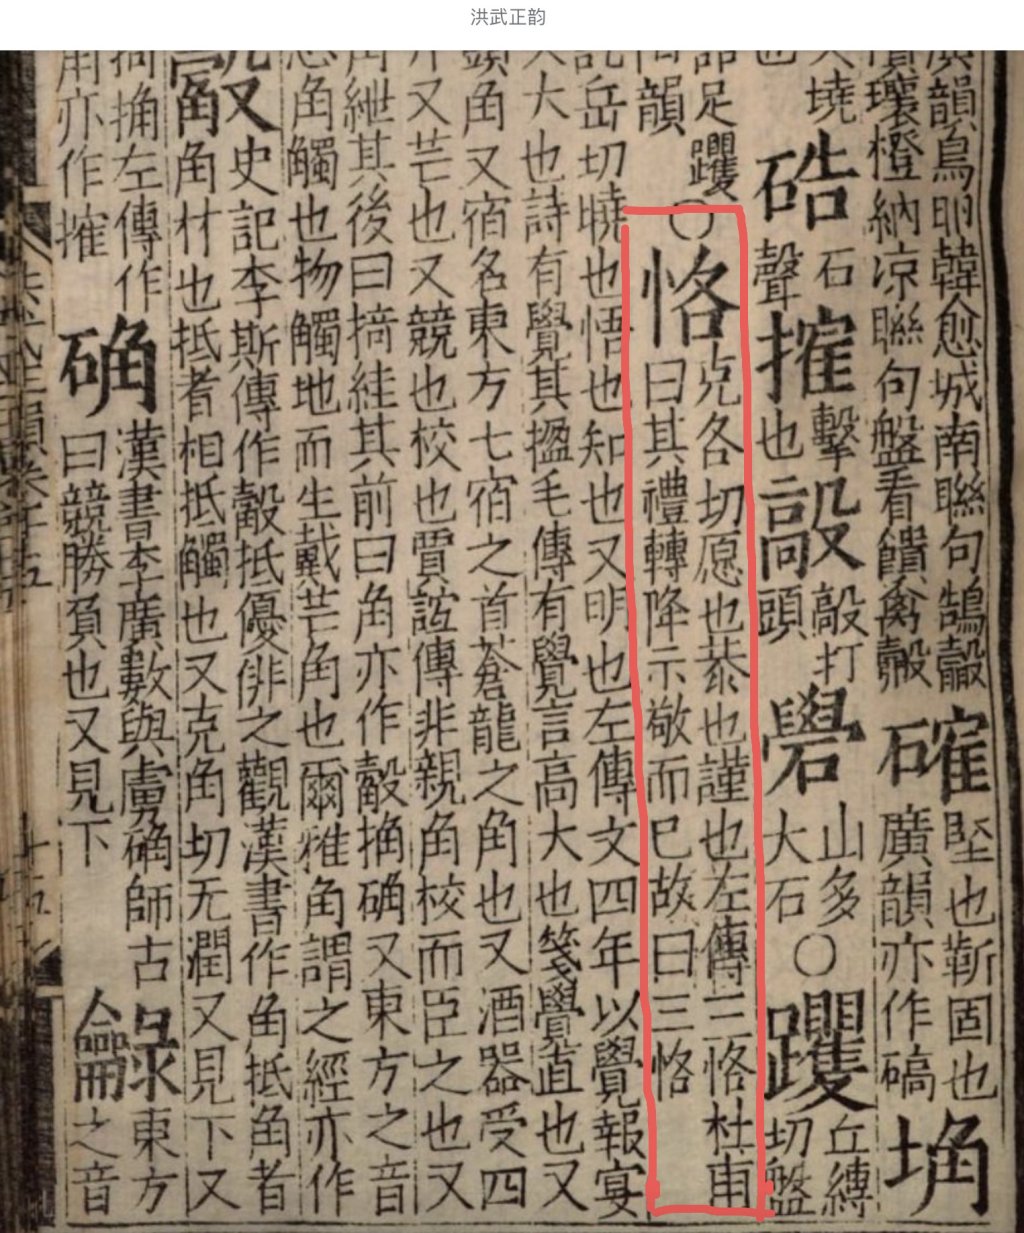 洪武正韵
廣韻鳥卵韓愈城南聯句鵠鷇
橙納凉聯句盤看饋禽鷇
確
堅也靳固也
廣韻亦作碻
埆
墝
也
硞
石
聲
搉
擊
也
毃
敲打
頭
礐
山多
大石
○
躩
丘縛
切盤
足躩
韻
○
恪
克各切愿也恭也謹也左傳三恪杜甫
曰其禮轉降示敬而已故曰三恪
訖岳切曉也悟也知也又明也左傳文四年以覺報宴
大也詩有覺其楹毛傳有覺言高大也箋覺直也又
頭角又宿名東方七宿之首蒼龍之角也又酒器受四
升又芒也又競也校也賈誼傳非親角校而臣之也又
角紲其後曰掎絓其前曰角亦作觳捔确又東方之音
角觸也物觸地而生戴芒角也爾雅角謂之經亦作
史記李斯傳作觳抵優俳之觀漢書作角抵角者
角材也抵者相抵觸也又克角切无潤又見下又
捔左傳作
角亦作搉
确
漢書李廣數與虜确師古
曰競勝負也又見下
龣
東方
之音